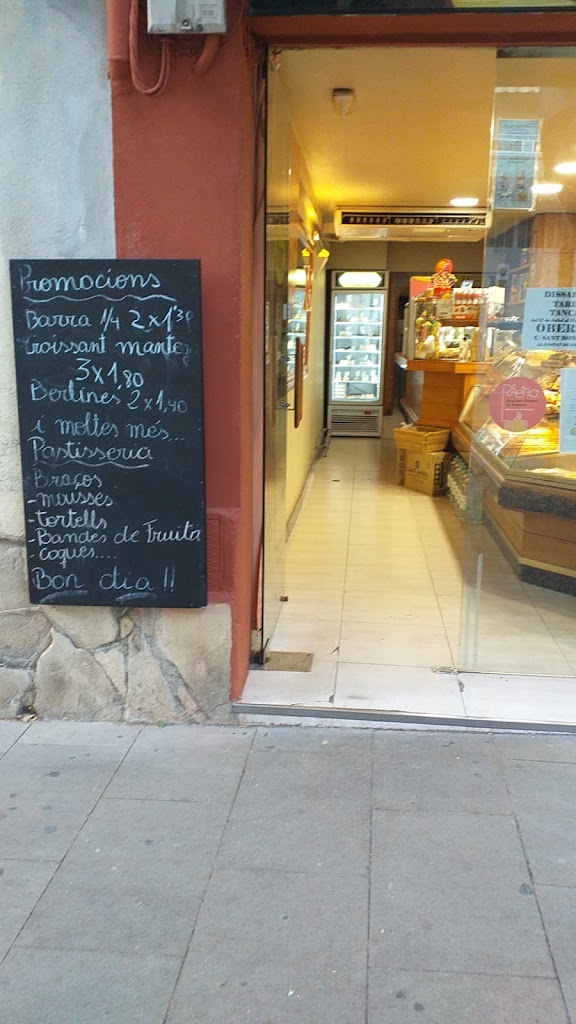 Promocions
Barra 1/4 2x1'30
Croissant manteg
3x1,80
Berlines 2x1,40
i moltes més...
Pastisseria
-Braços
-mousses
-tortells
-Bandes de Fruita
-coques....
Bon dia !!
DISSAB
TARD
TANCA
OBER
C/ SANT BON